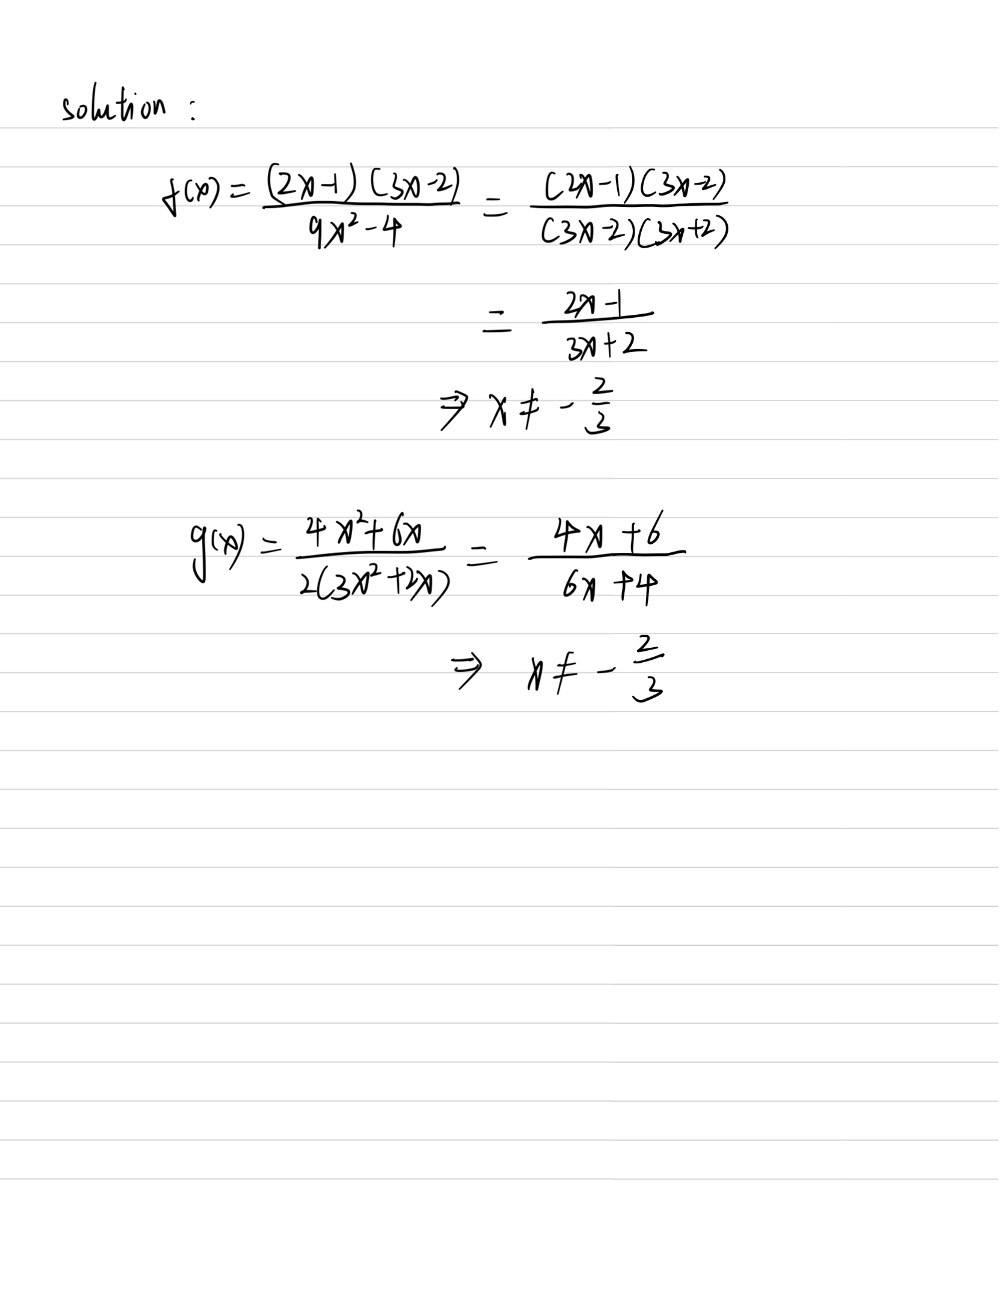 solution :
f(x) = (2x-1)(3x-2) / 9x²-4 = (2x-1)(3x-2) / (3x-2)(3x+2)
= 2x-1 / 3x+2
⇒ x ≠ - 2/3
g(x) = 4x²+6x / 2(3x²+2x) = 4x+6 / 6x+4
⇒ x ≠ - 2/3